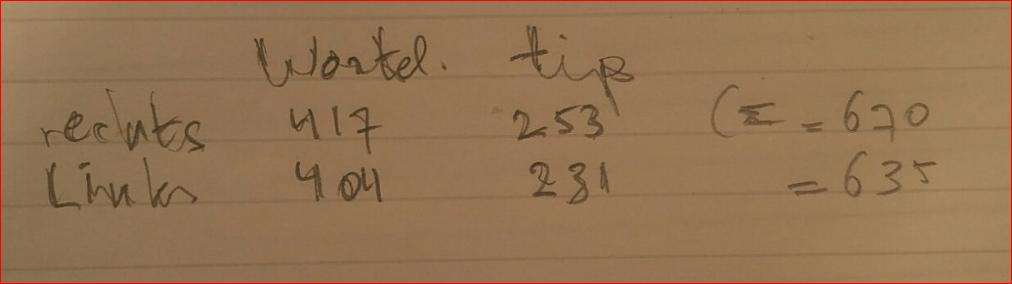 Wortel. tip
rechts 417 253 (Σ = 670
Links 404 231 = 635